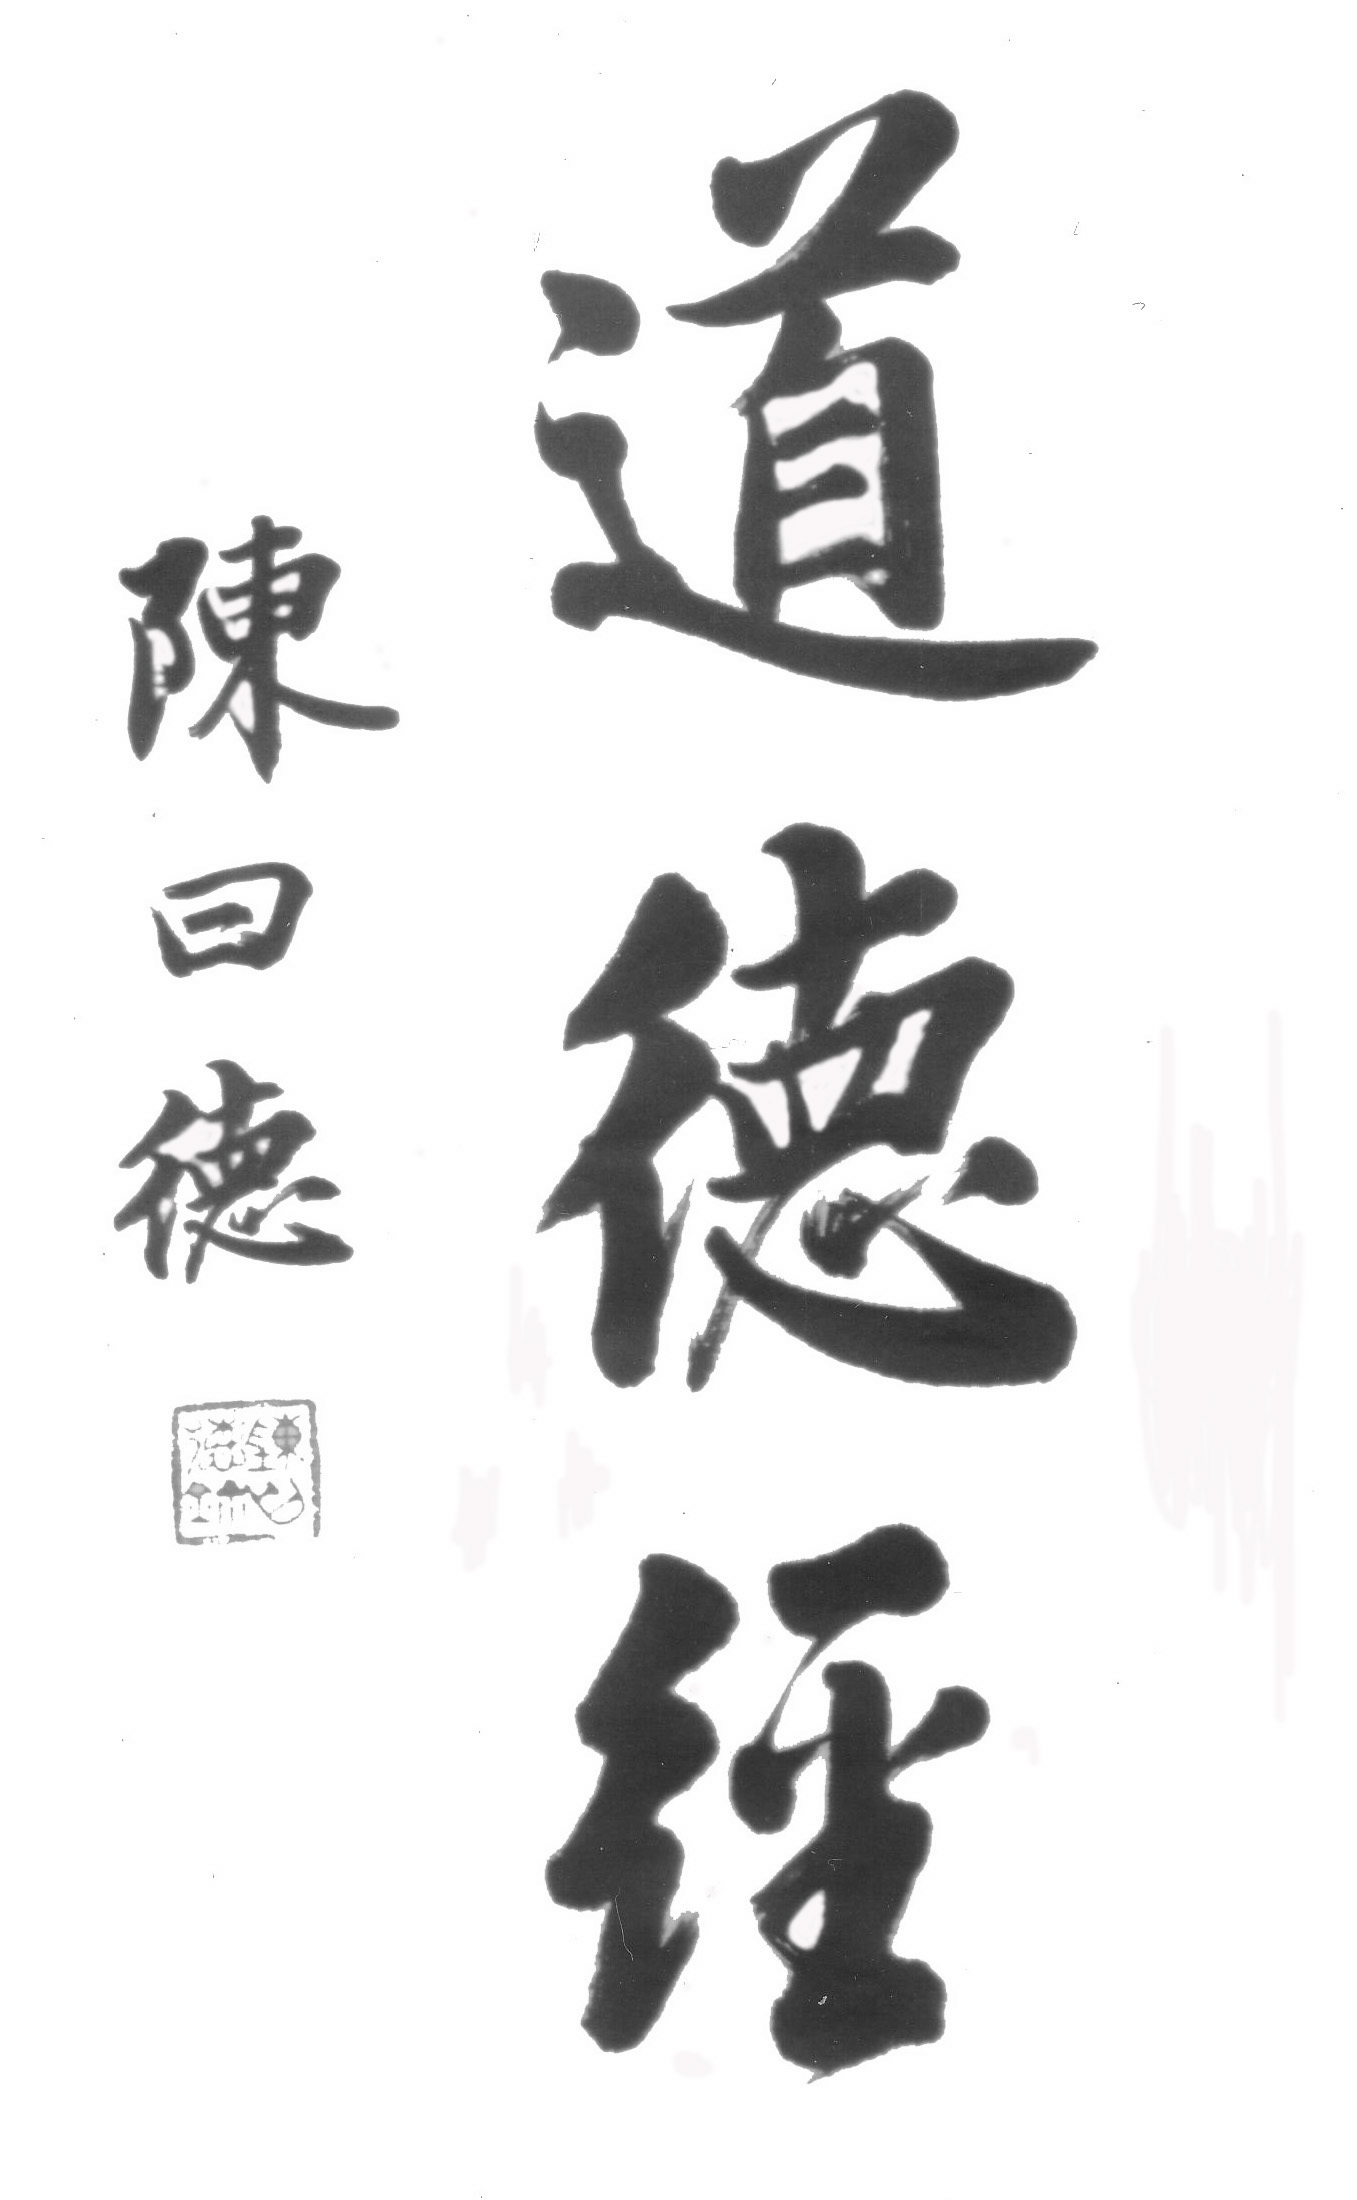 道德經
陳曰德